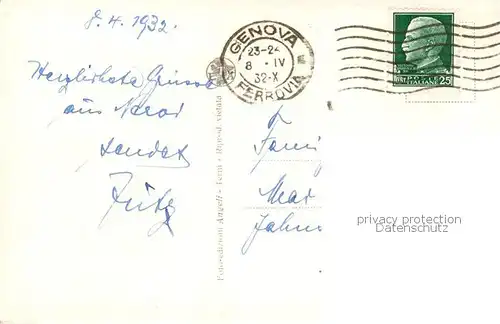 8. 4. 1932.
Herzlichste Grüsse
aus Nervi
sendet
Fritz
GENOVA
23-24
8 · IV
32·X
FERROVIA
POSTE
ITALIANE
25
Fotoedizioni Angeli - Terni - Ripr. vietata
Fami
Mar
Jahn
privacy protection
Datenschutz